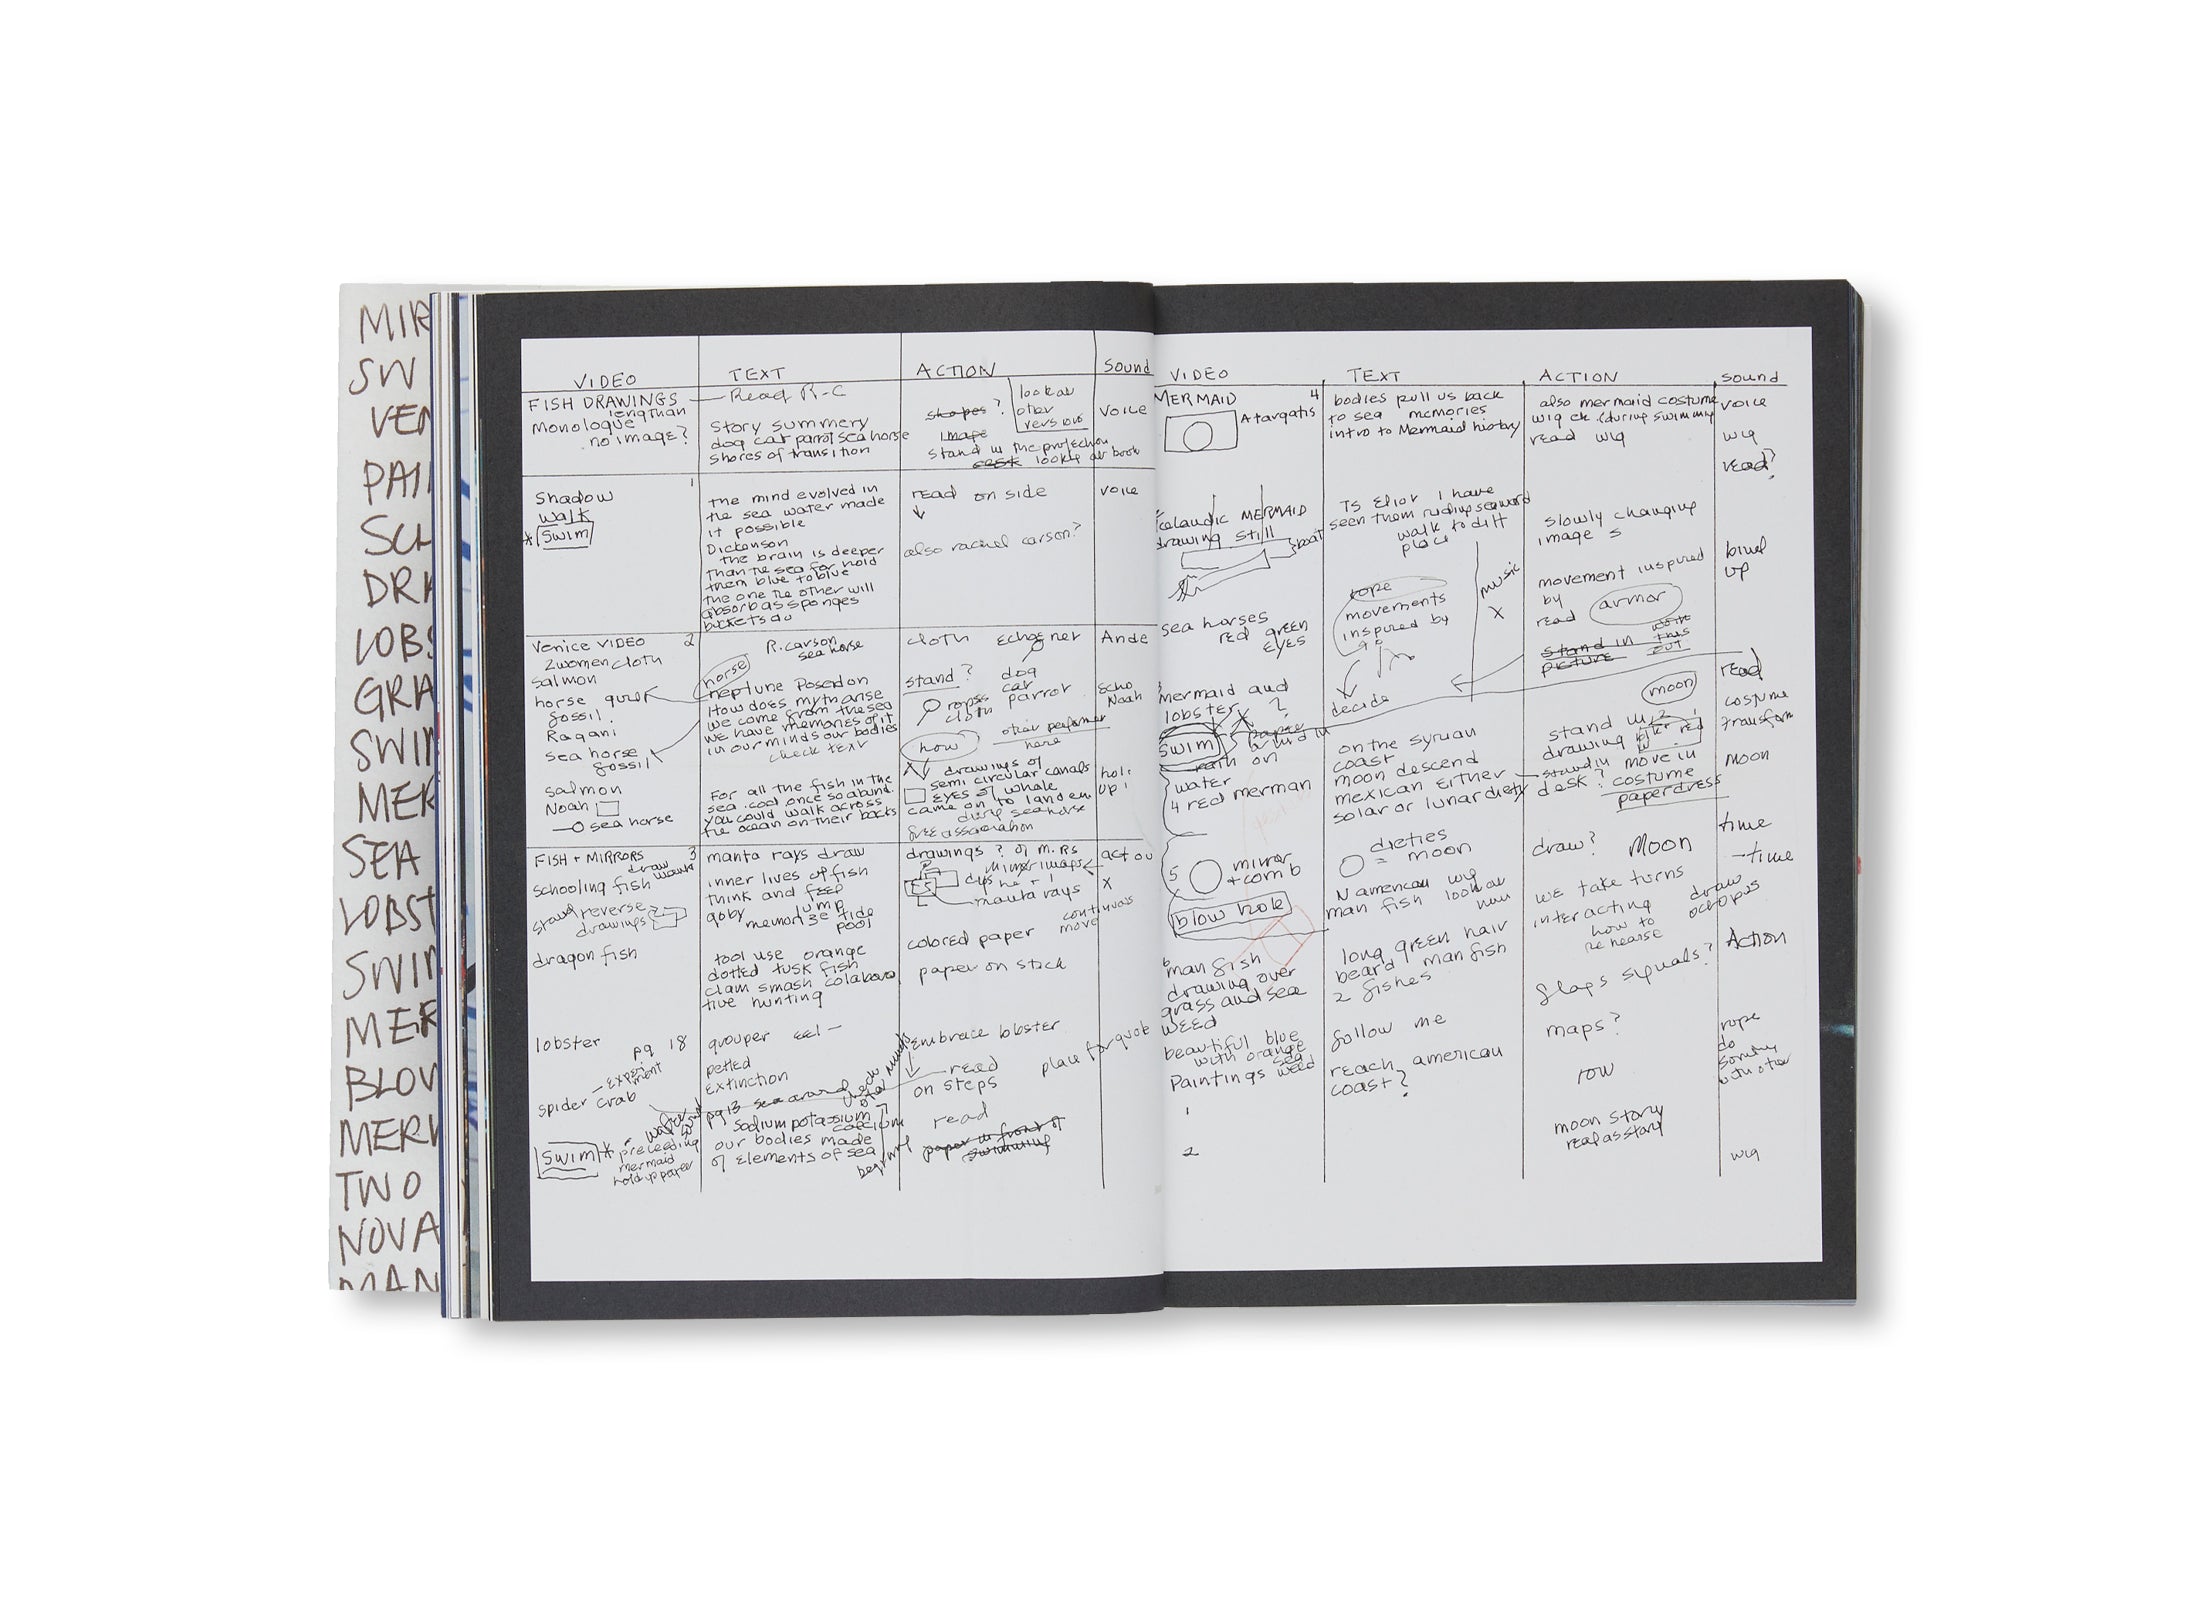 MIR
SW
VEN
PAI
SCH
DRA
LOBS
GRA
SWIM
MER
SEA
LOBST
SWIM
MER
BLOW
MERM
TWO
NOVA
MAN
VIDEO
FISH DRAWINGS
monologue
no image?
Shadow
1
walk
* Swim
Venice VIDEO 2
2 women cloth
salmon
horse
fossil
Ragani
sea horse
fossil
salmon
Noah
sea horse
FISH + MIRRORS 3
draw
schooling fish
reverse
drawings
dragon fish
lobster
pg 18
experiment
spider crab
Swim *
preceeding
mermaid
hold up paper
TEXT
Read R-C
Story summery
dog cat parrot sea horse
shores of transition
the mind evolved in
the sea water made
it possible
Dickenson
the brain is deeper
than the sea for hold
them blue to blue
the one the other will
absorb as sponges
buckets do
R. carson
sea horse
horse
neptune Poseidon
How does myth arise
we come from the sea
we have memories of it
in our minds our bodies
check text
For all the fish in the
sea cod once so abund
you could walk across
the ocean on their backs
manta rays draw
inner lives of fish
think and feel
goby jump
memorize tide
pool
tool use orange
dotted tusk fish
clam smash colabora
tive hunting
grouper eel —
petted
extinction
pg 13 sea around
sodium potassium
calcium
our bodies made
of elements of sea
ACTION
shapes?
look at
other
image
stand in the projection
desk looking at book
read on side
also rachel carson?
cloth
stand?
dog
cat
parrot
ropes
cloth
how
other performer
here
drawings of
semi circular canals
eyes of whale
came on to land
sea horse
free association
drawings? of m. rs
mirror images
manta rays
continuous
move
colored paper
paper on stick
embrace lobster
read
on steps
place for quote
read
paper in front of
swimming
Sound
voice
voice
Ande
Echo
Noah
hold
up
act out
X
VIDEO
MERMAID 4
Atargatis
Icelandic MERMAID
drawing still
boat
sea horses
red green
eyes
mermaid and
lobster
?
Swim
water
4 red merman
5
mirror
+ comb
blow hole
6
man fish
drawing over
grass and sea
weed
beautiful blue
with orange
sea
Paintings weed
1
2
TEXT
bodies pull us back
to sea memories
intro to Mermaid history
TS Eliot I have
seen them riding seaward
walk to diff
place
rope
movements
inspired by
music
X
decide
on the syrian
coast
moon descend
mexican either
solar or lunar diety
dieties
= moon
N american wig
man fish look at
long green hair
beard man fish
2 fishes
follow me
reach american
coast?
ACTION
also mermaid costume
wig etc (during swimming
read wig
slowly changing
images
movement inspired
by
read armor
stand in
picture
moon
stand in
drawing
stand in move in
desk? costume
paper dress
draw? Moon
we take turns
interacting
draw
octopus
how to
rehearse
flaps signals?
maps?
row
moon story
read as story
sound
voice
wig
read?
up
read
costume
transform
moon
time
-time
Action
rope
do
with other
wig